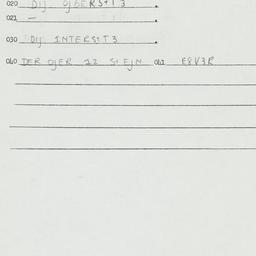 020 DIJ OJBERSTT3
021 —
030 DIJ INTERSTT3
060 DER OJER 12 STEJN 061 E8V3R